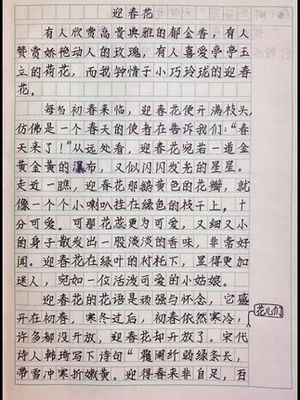 迎春花
有人欣赏高贵典雅的郁金香,有人
赞赏娇艳动人的玫瑰,有人喜爱亭亭玉
立的荷花,而我钟情于小巧玲珑的迎春
花。
每当初春来临,迎春花便开满枝头,
仿佛是一个春天的使者在告诉我们:“春
天来了!”从远处看,迎春花宛若一道金
黄金黄的瀑布,又似闪闪发光的星星。
走近一瞧,迎春花那鹅黄色的花瓣,就
像一个个小喇叭挂在绿色的枝子上,十
分可爱。可那花蕊更为可爱,又细又小
的身子散发出一股淡淡的香味,非常好
闻。迎春花在绿叶的衬托下,显得更加
迷人,宛如一位活泼可爱的小姑娘。
迎春花的花语是顽强与怀念,它盛
开在初春,寒冬过后,初春依然寒冷,
花儿们
许多都没开放,迎春花却开放了。宋代
诗人韩琦写下诗句“覆阑纤弱绿条长,
带雪冲寒折嫩黄。迎得春来非自足,百